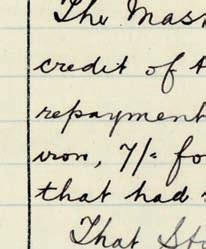 The Mas
credit of t
repayment
iron, 7/= fo
that had
That Sto